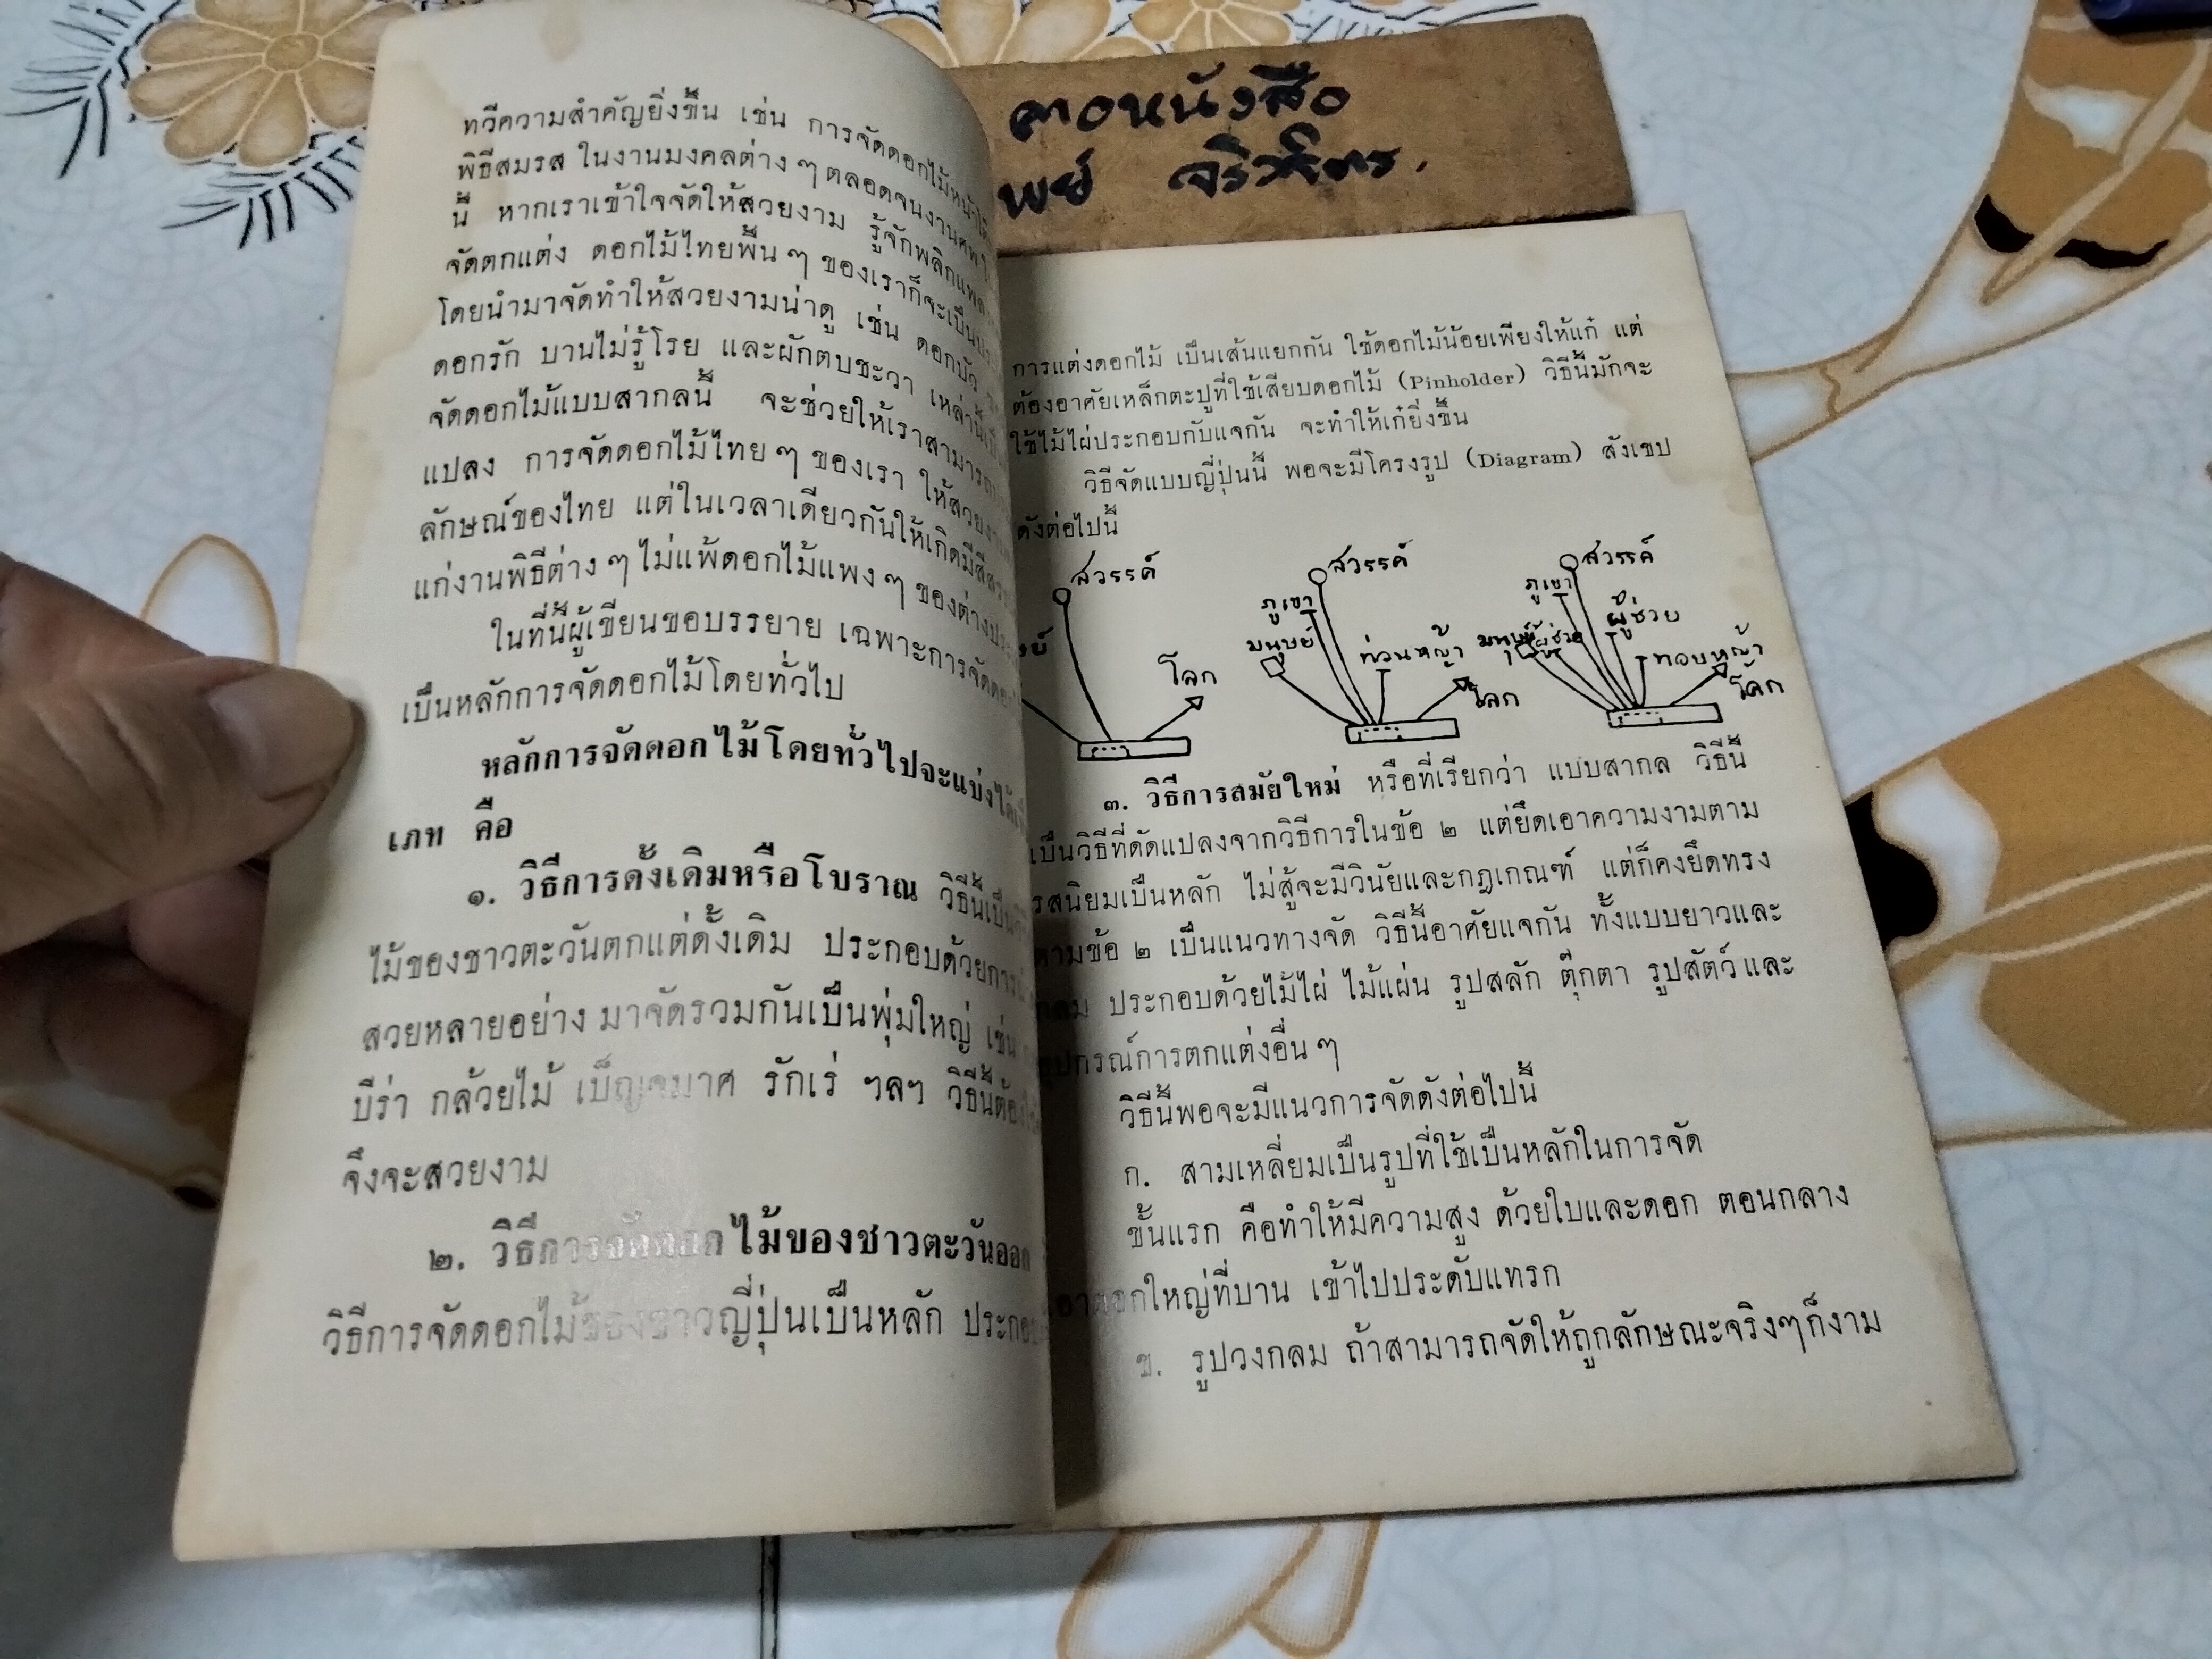 คอหนังสือ
พย์
ทวีความสำคัญยิ่งขึ้น เช่น การจัดดอกไม้หน้า
พิธีสมรส ในงานมงคลต่าง ๆ ตลอดจนงานศพ
นี้ หากเราเข้าใจจัดให้สวยงาม รู้จักพลิกแพลง
จัดตกแต่ง ดอกไม้ไทยพื้น ๆ ของเราก็จะเป็น
โดยนำมาจัดทำให้สวยงามน่าดู เช่น ดอกบัว
ดอกรัก บานไม่รู้โรย และผักตบชะวา เหล่านี้
จัดดอกไม้แบบสากลนี้ จะช่วยให้เราสามารถ
แปลง การจัดดอกไม้ไทย ๆ ของเรา ให้สวยงาม
ลักษณ์ของไทย แต่ในเวลาเดียวกันให้เกิดมี
แก่งานพิธีต่าง ๆ ไม่แพ้ดอกไม้แพง ๆ ของต่าง
ในที่นี้ผู้เขียนขอบรรยาย เฉพาะการจัดดอก
เป็นหลักการจัดดอกไม้โดยทั่วไป
หลักการจัดดอกไม้โดยทั่วไปจะแบ่งได้
เภท คือ
๑. วิธีการดั้งเดิมหรือโบราณ วิธีนี้เป็น
ไม้ของชาวตะวันตกแต่ดั้งเดิม ประกอบด้วยการ
สวยหลายอย่าง มาจัดรวมกันเป็นพุ่มใหญ่ เช่น
บีร่า กล้วยไม้ เบ็ญจมาศ รักเร่ ฯลฯ วิธีนี้ต้อง
จึงจะสวยงาม
๒. วิธีการจัดดอกไม้ของชาวตะวันออก
วิธีการจัดดอกไม้ของชาวญี่ปุ่นเป็นหลัก ประกอบ
การแต่งดอกไม้ เป็นเส้นแยกกัน ใช้ดอกไม้น้อยเพียงให้แก๋ แต่
ต้องอาศัยเหล็กตะปูที่ใช้เสียบดอกไม้ (Pinholder) วิธีนี้มักจะ
ใช้ไม้ไผ่ประกอบกับแจกัน จะทำให้เก๋ยิ่งขึ้น
วิธีจัดแบบญี่ปุ่นนี้ พอจะมีโครงรูป (Diagram) สังเขป
ดังต่อไปนี้
สวรรค์
โลก
สวรรค์
ภูเขา
มนุษย์
ท่วนหญ้า
โลก
สวรรค์
ภูเขา
ผู้ช่วย
มนุษย์
ผู้ช่วย
ทอนหญ้า
โลก
๓. วิธีการสมัยใหม่ หรือที่เรียกว่า แบบสากล วิธีนี้
เป็นวิธีที่ดัดแปลงจากวิธีการในข้อ ๒ แต่ยึดเอาความงามตาม
รสนิยมเป็นหลัก ไม่สู้จะมีวินัยและกฎเกณฑ์ แต่ก็คงยึดทรง
ตามข้อ ๒ เป็นแนวทางจัด วิธีนี้อาศัยแจกัน ทั้งแบบยาวและ
กลม ประกอบด้วยไม้ไผ่ ไม้แผ่น รูปสลัก ตุ๊กตา รูปสัตว์ และ
อุปกรณ์การตกแต่งอื่น ๆ
วิธีนี้พอจะมีแนวการจัดดังต่อไปนี้
ก. สามเหลี่ยมเป็นรูปที่ใช้เป็นหลักในการจัด
ขั้นแรก คือทำให้มีความสูง ด้วยใบและดอก ตอนกลาง
เอาดอกใหญ่ที่บาน เข้าไปประดับแทรก
ข. รูปวงกลม ถ้าสามารถจัดให้ถูกลักษณะจริงๆก็งาม